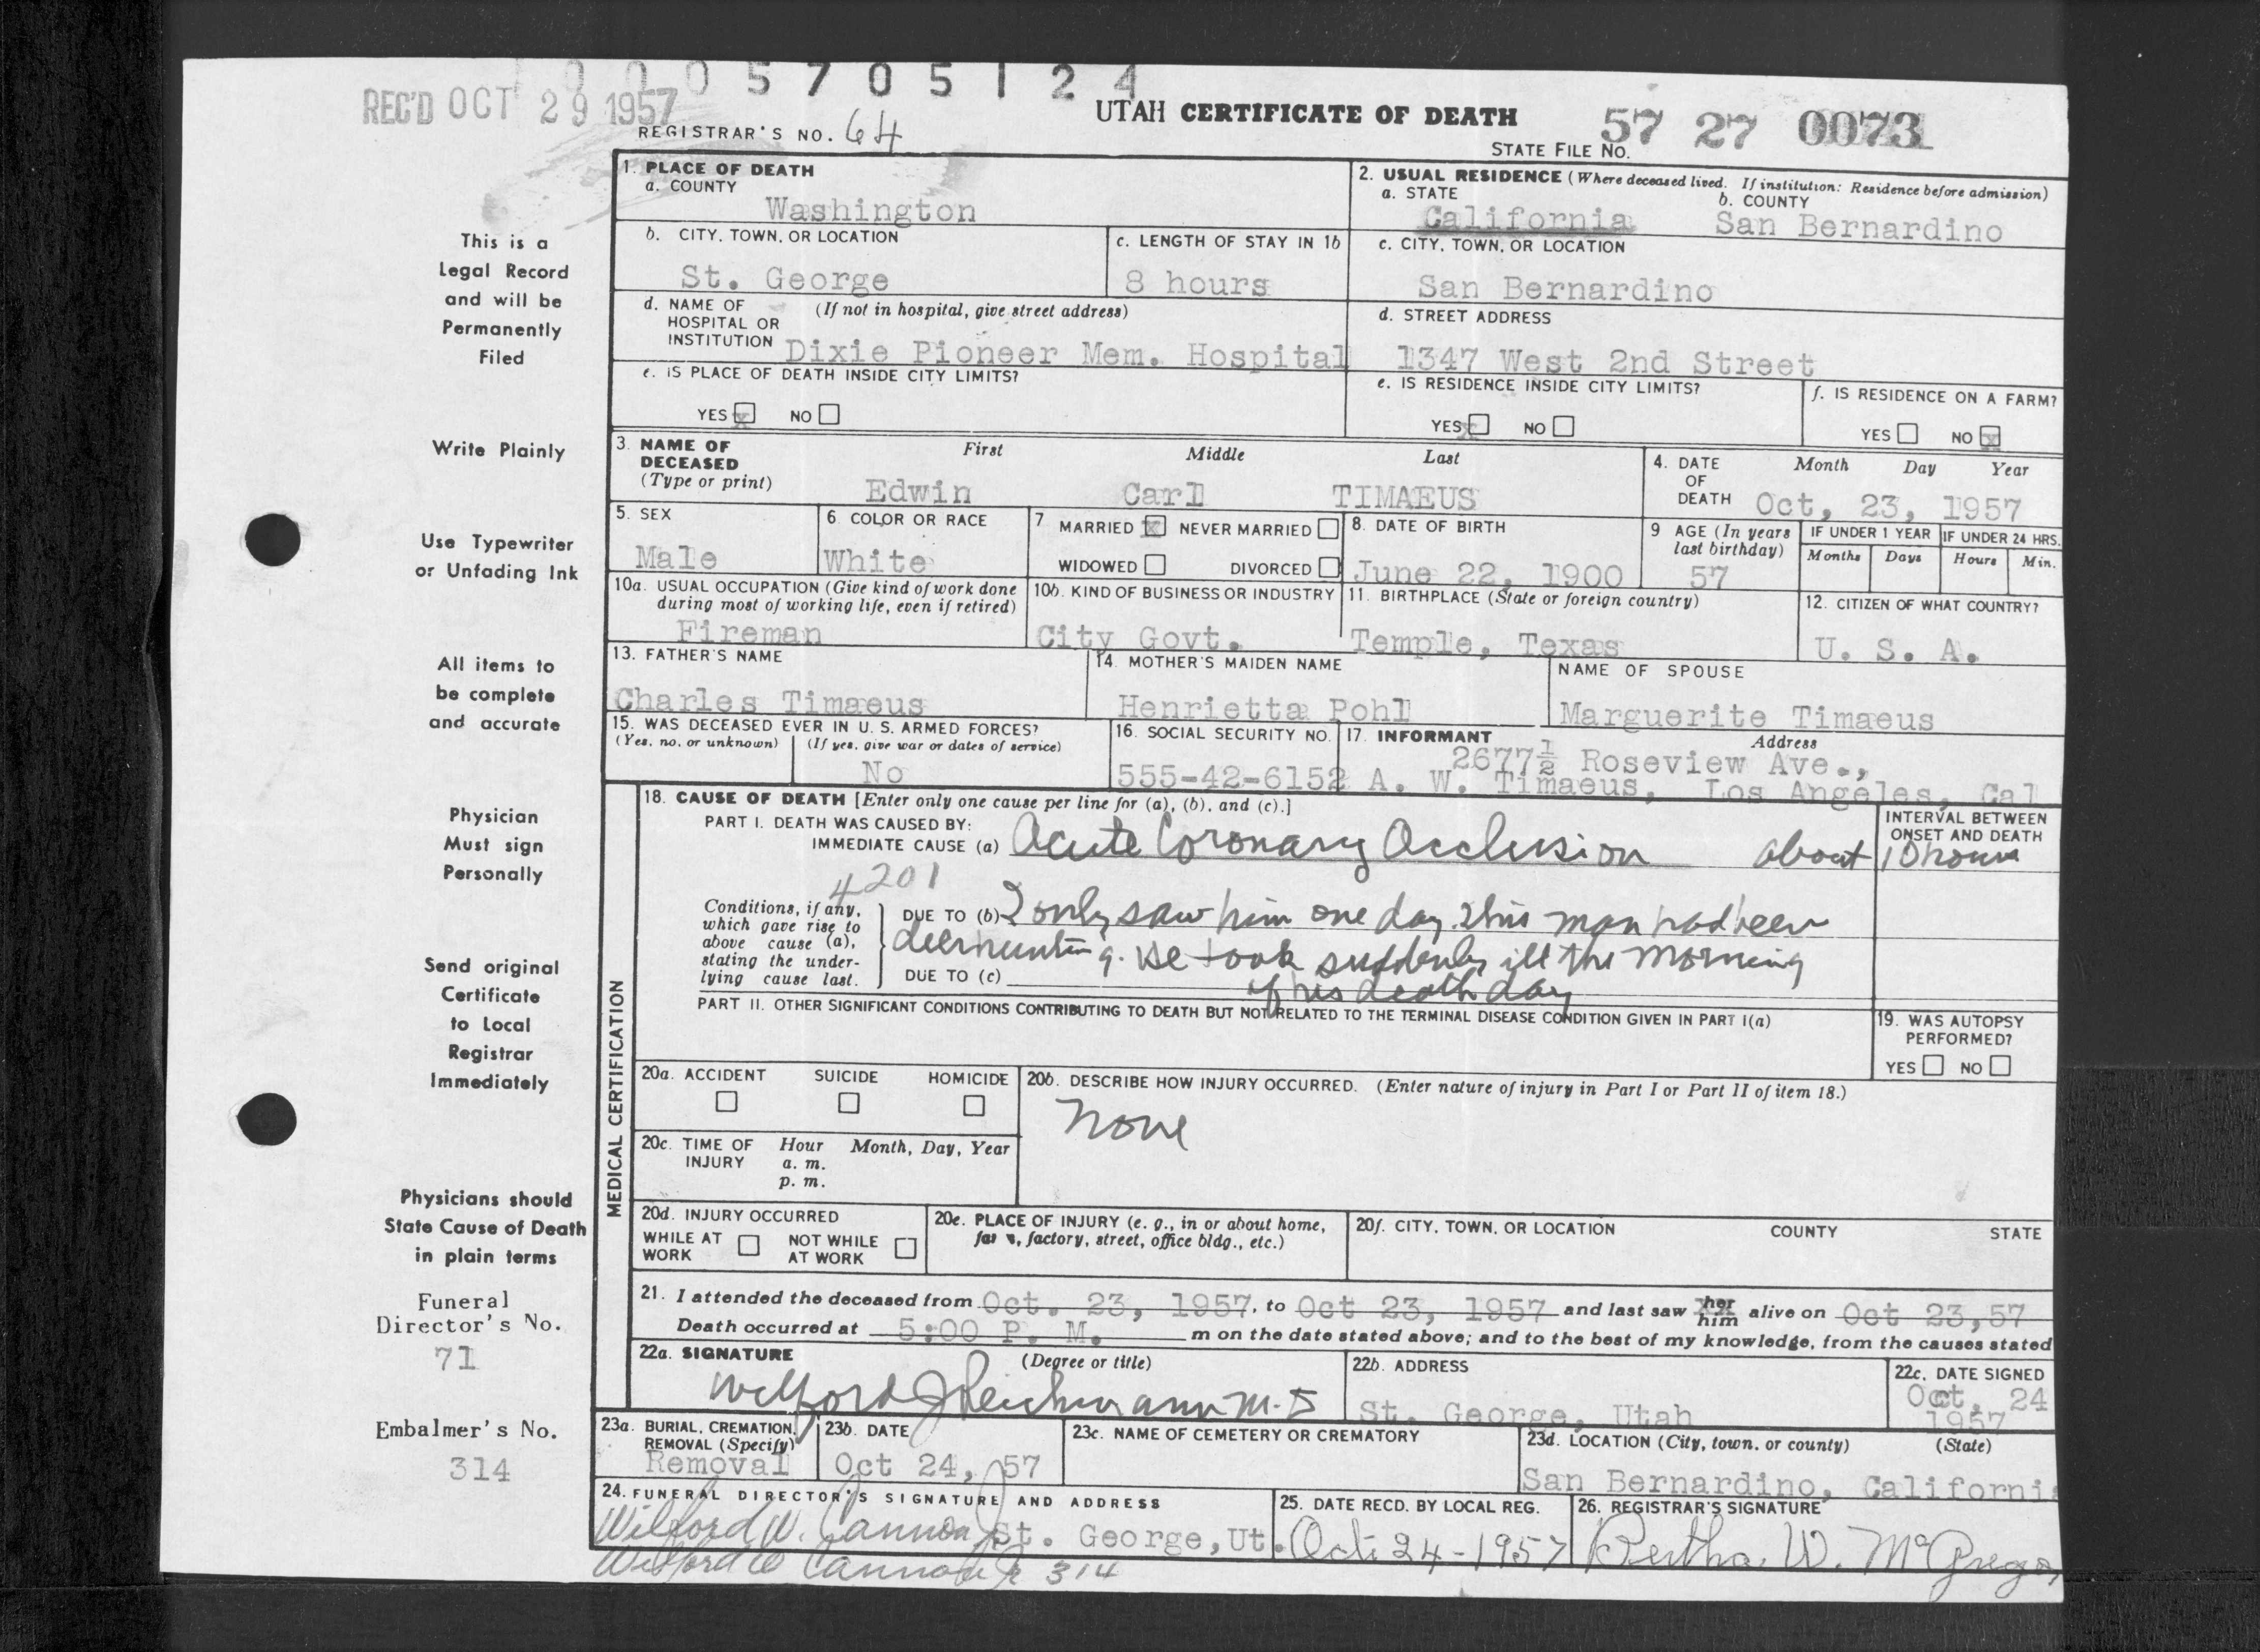 0005705124
REC'D OCT 29 1957
REGISTRAR'S NO. 64
UTAH CERTIFICATE OF DEATH
STATE FILE NO. 57 27 0073
This is a
Legal Record
and will be
Permanently
Filed
Write Plainly
Use Typewriter
or Unfading Ink
All items to
be complete
and accurate
Physician
Must sign
Personally
Send original
Certificate
to Local
Registrar
Immediately
Physicians should
State Cause of Death
in plain terms
Funeral
Director's No.
71
Embalmer's No.
314
1. PLACE OF DEATH
a. COUNTY
Washington
2. USUAL RESIDENCE (Where deceased lived. If institution: Residence before admission)
a. STATE b. COUNTY
California San Bernardino
b. CITY, TOWN, OR LOCATION
St. George
c. LENGTH OF STAY IN 1b
8 hours
c. CITY, TOWN, OR LOCATION
San Bernardino
d. NAME OF (If not in hospital, give street address)
HOSPITAL OR
INSTITUTION Dixie Pioneer Mem. Hospital
d. STREET ADDRESS
1347 West 2nd Street
e. IS PLACE OF DEATH INSIDE CITY LIMITS?
YES x NO
e. IS RESIDENCE INSIDE CITY LIMITS?
YES x NO
f. IS RESIDENCE ON A FARM?
YES NO x
3. NAME OF DECEASED (Type or print)
First Middle Last
Edwin Carl TIMAEUS
4. DATE OF DEATH
Month Day Year
Oct, 23, 1957
5. SEX
Male
6. COLOR OR RACE
White
7 MARRIED x NEVER MARRIED
WIDOWED DIVORCED
8. DATE OF BIRTH
June 22, 1900
9 AGE (In years last birthday)
57
IF UNDER 1 YEAR
Months Days
IF UNDER 24 HRS.
Hours Min.
10a. USUAL OCCUPATION (Give kind of work done
during most of working life, even if retired)
Fireman
10b. KIND OF BUSINESS OR INDUSTRY
City Govt.
11. BIRTHPLACE (State or foreign country)
Temple, Texas
12. CITIZEN OF WHAT COUNTRY?
U. S. A.
13. FATHER'S NAME
Charles Timaeus
14. MOTHER'S MAIDEN NAME
Henrietta Pohl
NAME OF SPOUSE
Marguerite Timaeus
15. WAS DECEASED EVER IN U. S. ARMED FORCES?
(Yes, no, or unknown) (If yes, give war or dates of service)
No
16. SOCIAL SECURITY NO.
555-42-6152
17. INFORMANT Address
2677½ Roseview Ave.,
A. W. Timaeus, Los Angeles, Cal
MEDICAL CERTIFICATION
18. CAUSE OF DEATH [Enter only one cause per line for (a), (b), and (c).]
PART I. DEATH WAS CAUSED BY:
IMMEDIATE CAUSE (a) Acute Coronary Occlusion about 10 hours
INTERVAL BETWEEN
ONSET AND DEATH
4201
Conditions, if any,
which gave rise to
above cause (a),
stating the under-
lying cause last.
DUE TO (b) I only saw him one day. This man had been
deerhunting. He took suddenly ill the morning
DUE TO (c)
of his death day
PART II. OTHER SIGNIFICANT CONDITIONS CONTRIBUTING TO DEATH BUT NOT RELATED TO THE TERMINAL DISEASE CONDITION GIVEN IN PART I(a)
19. WAS AUTOPSY
PERFORMED?
YES NO
20a. ACCIDENT SUICIDE HOMICIDE
20b. DESCRIBE HOW INJURY OCCURRED. (Enter nature of injury in Part I or Part II of item 18.)
None
20c. TIME OF INJURY Hour Month, Day, Year
a. m.
p. m.
20d. INJURY OCCURRED
WHILE AT WORK NOT WHILE AT WORK
20e. PLACE OF INJURY (e. g., in or about home,
farm, factory, street, office bldg., etc.)
20f. CITY, TOWN, OR LOCATION COUNTY STATE
21. I attended the deceased from Oct. 23, 1957, to Oct 23, 1957 and last saw her him alive on Oct 23,57
Death occurred at 5:00 P. M. m on the date stated above; and to the best of my knowledge, from the causes stated
22a. SIGNATURE (Degree or title)
Wilford J Reichmann M.D
22b. ADDRESS
St. George, Utah
22c. DATE SIGNED
Oct, 24
1957
23a. BURIAL, CREMATION, REMOVAL (Specify)
Removal
23b. DATE
Oct 24, 57
23c. NAME OF CEMETERY OR CREMATORY
23d. LOCATION (City, town, or county) (State)
San Bernardino, Californi
24. FUNERAL DIRECTOR'S SIGNATURE AND ADDRESS
Wilford W. Cannon St. George, Ut.
Wilford W Cannon Jr 314
25. DATE RECD. BY LOCAL REG.
Oct. 24-1957
26. REGISTRAR'S SIGNATURE
Bertha W. McGregor